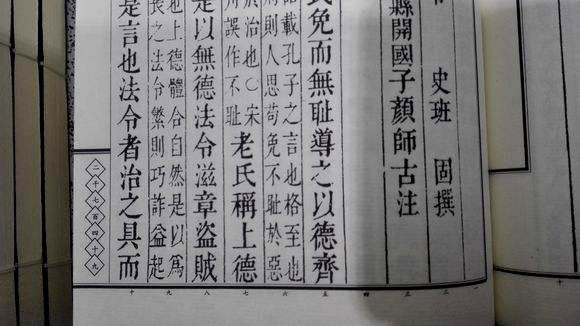 史班 固撰
縣開國子顔師古注
民免而無恥導之以德齊
語載孔子之言也格至也
刑則人思苟免不恥於惡
於治也○宋
所誤作不耻
老氏稱上德
是以無德法令滋章盜賊
也上德體合自然是以爲
喪之法令繁則巧詐益起
是言也法令者治之具而
二十七百四十九
一 二 三 四 五 六 七 八 九 十
十